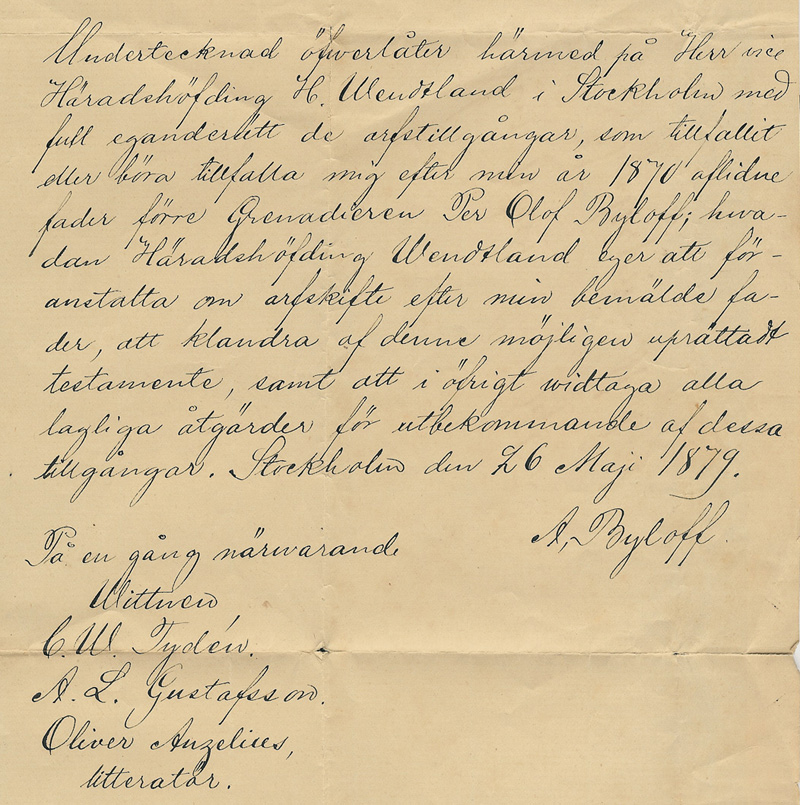 Undertecknad öfwerlåter härmed på Herr vice
Häradshöfding H. Wendtland i Stockholm med
full eganderätt de arfstillgångar, som tillfallit
eller böra tillfalla mig efter min år 1870 aflidne
fader förre Grenadieren Per Olof Byloff; hwa-
dan Häradshöfding Wendtland eger att för-
anstalta om arfskifte efter min bemälde fa-
der, att klandra af denne möjligen uprättadt
testamente, samt att i öfrigt widtaga alla
lagliga åtgärder för utbekommande af dessa
tillgångar. Stockholm den 26 Maji 1879.
A. Byloff.
På en gång närwarande
Wittnen
C. W. Tydén.
A. L. Gustafsson.
Oliver Anzelius,
litteratör.